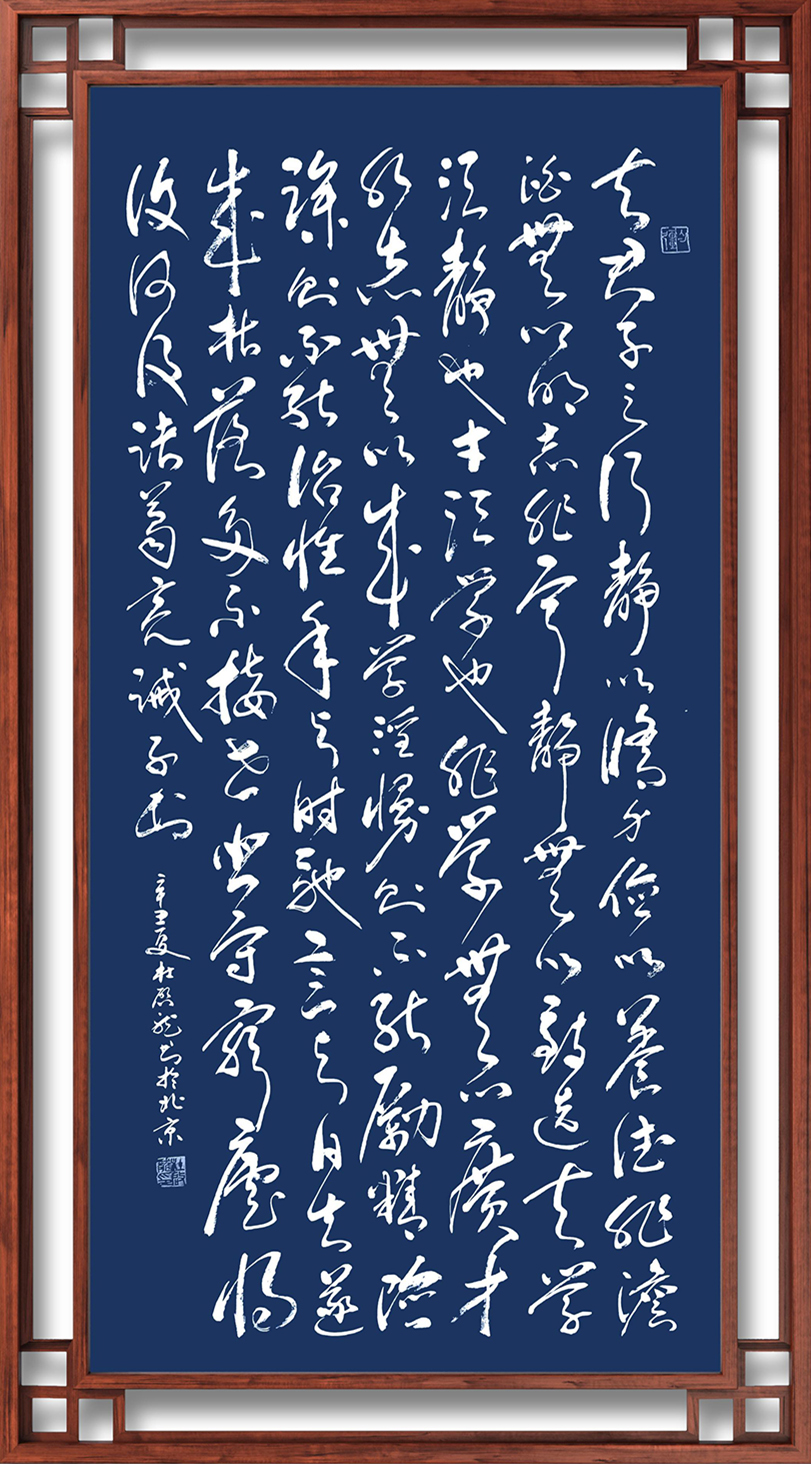 夫君子之行静以脩身俭以養德非澹
泊無以明志非寧静無以致遠夫学
须静也才须学也非学無以廣才
非志無以成学淫慢则不能励精险
躁则不能治性年与时驰意与日去遂
成枯落多不接世悲守穷廬将
復何及诸葛亮诫子书
辛丑夏杜龙书於北京